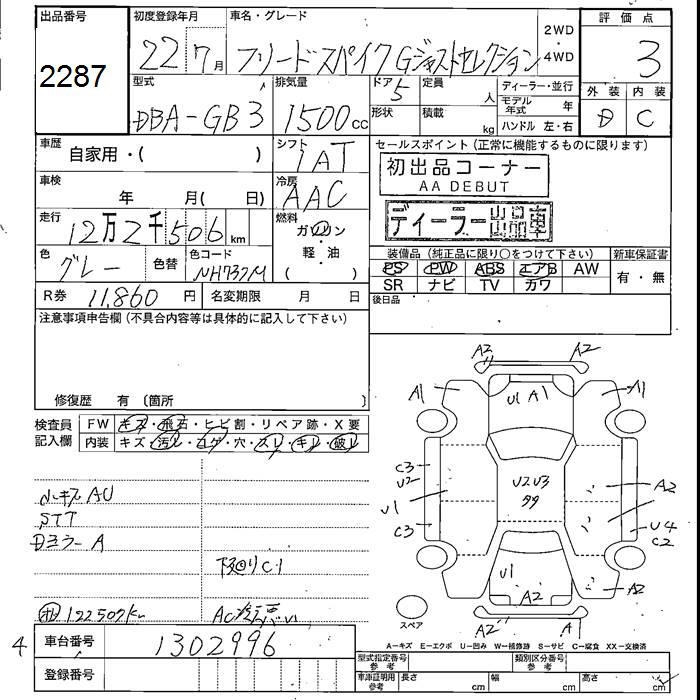 出品番号
2287
初度登録年月
22 7月
車名・グレード
フリードスパイク Gジャストセレクション
2WD
・
4WD
評価点
3
外装 内装
D C
型式
DBA-GB3
排気量
1500cc
ドア 5
形状
定員 人
積載 kg
ディーラー・並行
モデル年式 年
ハンドル 左・右
車歴
自家用・( )
シフト
IAT
セールスポイント(正常に機能するものに限ります)
初出品コーナー
AA DEBUT
ディーラー出品車
車検
年 月( 日)
冷房
AAC
走行
12万2千506km
燃料
ガソリン
軽・油
( )
色
グレー
色替
色コード
NH737M
装備品(純正品に限り○をつけて下さい)
新車保証書
PS PW ABS エアB AW
SR ナビ TV カワ
有・無
R券 11,860円
名変期限 月 日
後日品
注意事項申告欄(不具合内容等は具体的に記入して下さい)
修復歴 有〔箇所 〕
検査員
記入欄
FW キズ・飛石・ヒビ割・リペア跡・X要
内装 キズ・汚レ・コゲ・穴・スレ・キレ・破レ
小キズAU
STT
Dミラー A
下廻りC1
122507km
4
車台番号
1302996
登録番号
A2 A2
A1 U1 A1 A1
C3
U2
U1
C3
U2U3
A2
U4
C2
U1
A2 A2
A2 A1
スペア
A-キズ E-エクボ U-凹み W-補修跡 S-サビ C-腐食 XX-交換済
型式指定番号
参考
類別区分番号
参考
車庫証明用
参考
長さ cm
幅 cm
高さ cm